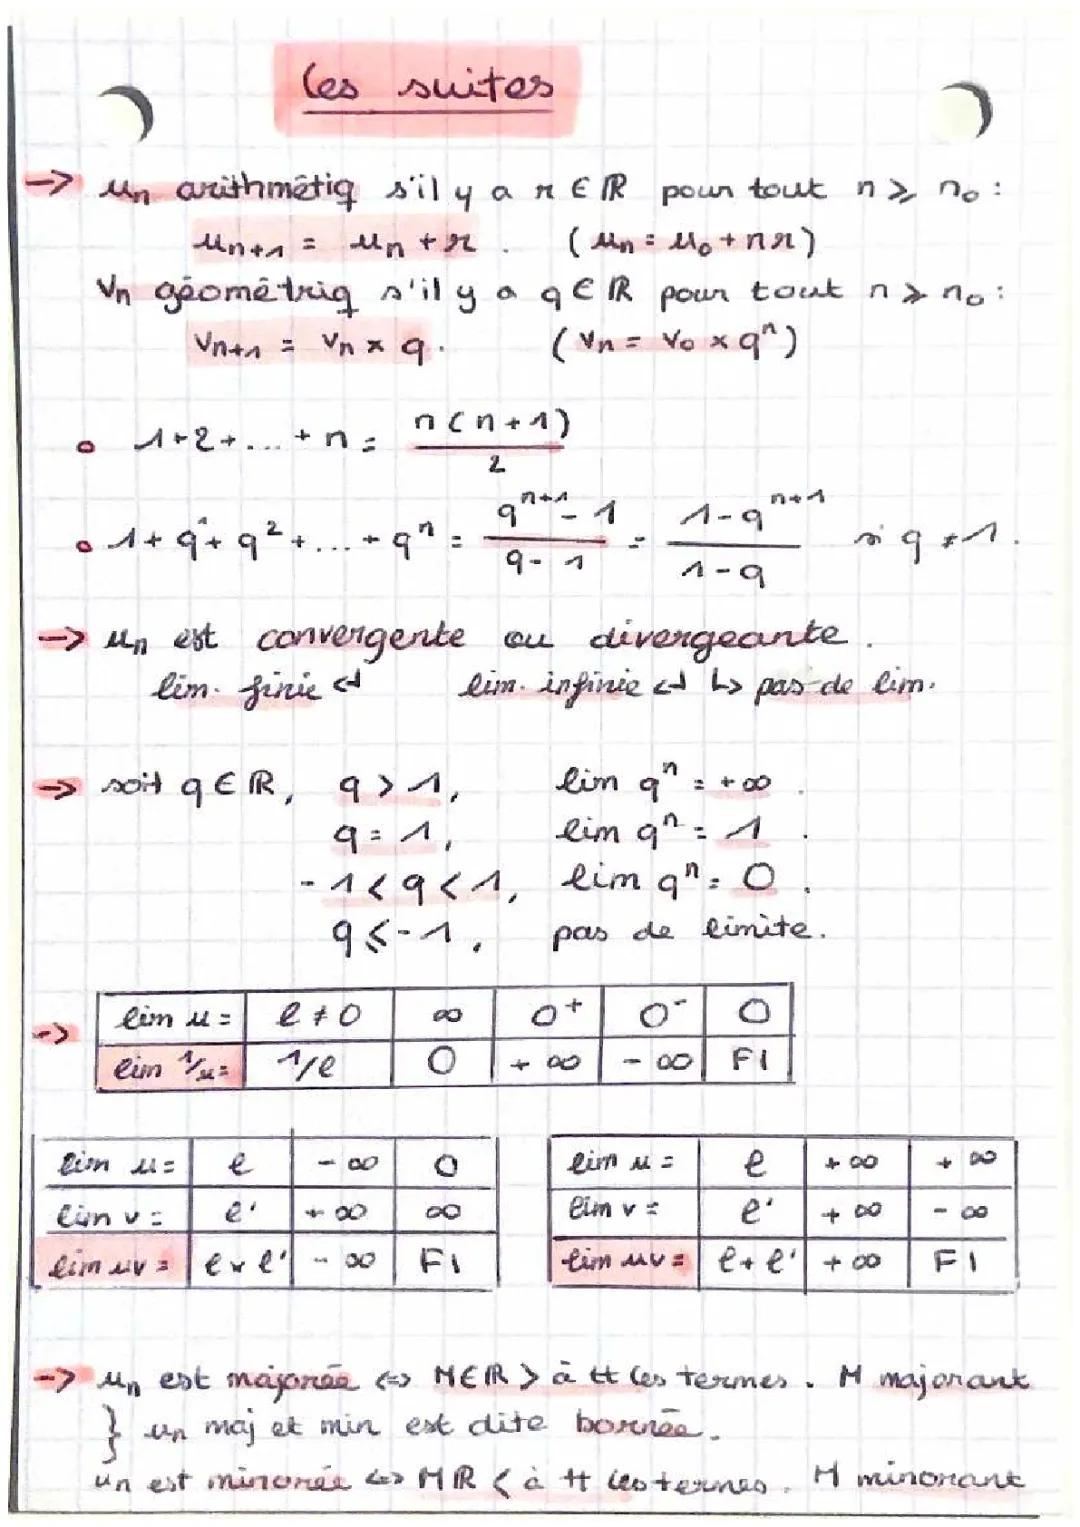 Les suites
→ un arithmétiq s'il y a r ∈ ℝ pour tout n ⩾ n₀ :
un+1 = un + r . (un = u₀ + nr)
Vn géométriq s'il y a q ∈ ℝ pour tout n ⩾ n₀ :
Vn+1 = Vn × q . (Vn = V₀ × qⁿ)
• 1+2+...+n = n(n+1)/2
• 1+q¹+q²+...+qⁿ = (qⁿ⁺¹-1)/(q-1) = (1-qⁿ⁺¹)/(1-q) si q ≠ 1.
→ un est convergente ou divergeante.
lim. finie ↵ lim. infinie ↵ ↳ pas de lim.
→ soit q ∈ ℝ, q > 1, lim qⁿ = +∞ .
q = 1, lim qⁿ = 1 .
-1 < q < 1, lim qⁿ = 0 .
q ⩽ -1, pas de limite.
→ lim u = | l ≠ 0 | ∞ | 0⁺ | 0⁻ | 0
lim 1/u = | 1/l | 0 | +∞ | -∞ | FI
lim u = | l | -∞ | 0
lim v = | l' | +∞ | ∞
lim uv = | l × l' | -∞ | FI
lim u = | l | +∞ | +∞
lim v = | l' | +∞ | -∞
lim uv = | l + l' | +∞ | FI
→ un est majorée ⇔ M∈ℝ > à tt les termes. M majorant
} un maj et min est dite bornée.
un est minorée ⇔ Mℝ < à tt les termes. M minorant